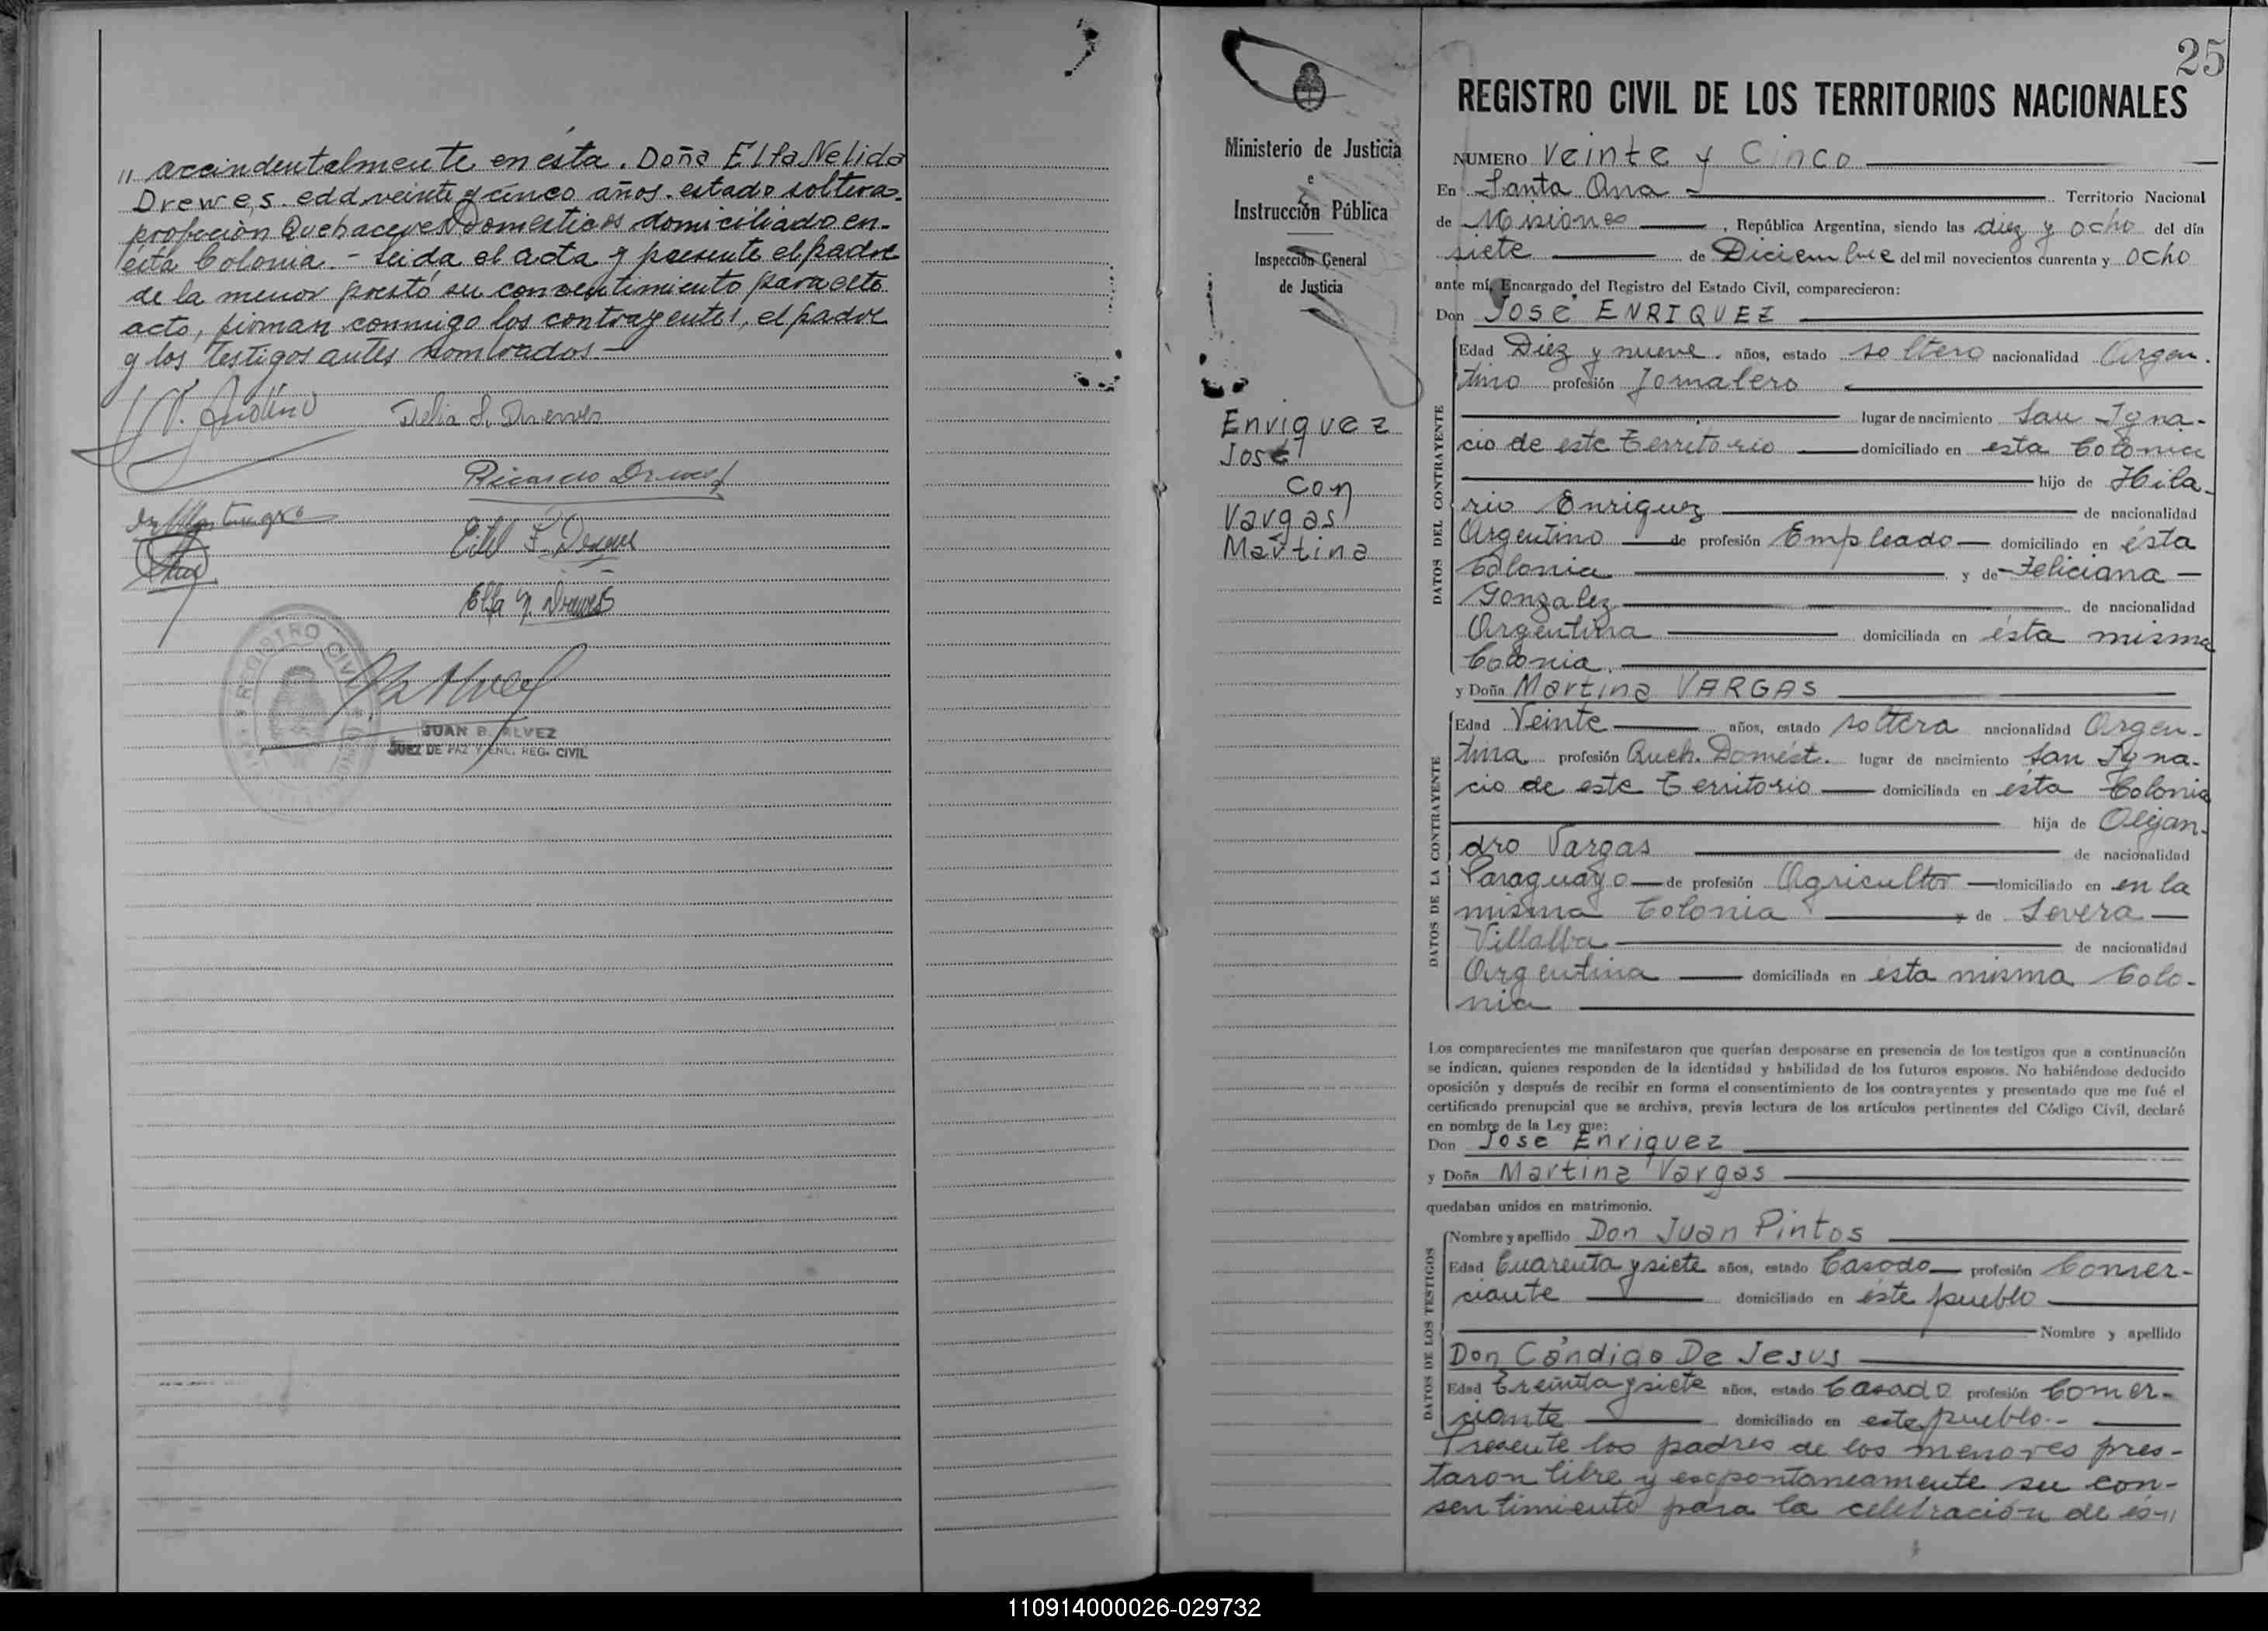 " accindentalmente en esta. Doña Elfa Nelida
Drewes. edad veinte y cinco años. estado soltera.
profeción Quehaceres Domesticos domiciliado en
ésta Colonia. - Leida el acta y presente el padre
de la menor prestó su consentimiento para este
acto, firman conmigo los contrayentes, el padre
y los testigos antes nombrados.-
Delia S. Drewes
Ricardo Drewes
F.
Elfa N. Drewes
REGISTRO CIVIL
JUAN B. ALVEZ
JUEZ DE PAZ Y ENC. REG. CIVIL
Ministerio de Justicia
e
Instrucción Pública
Inspección General
de Justicia
Enriquez
José
con
Vargas
Martina
25
REGISTRO CIVIL DE LOS TERRITORIOS NACIONALES
NUMERO Veinte y Cinco
En Santa Ana Territorio Nacional
de Misiones, República Argentina, siendo las diez y ocho del día
siete de Diciembre del mil novecientos cuarenta y ocho
ante mí, Encargado del Registro del Estado Civil, comparecieron:
Don JOSÉ ENRIQUEZ
DATOS DEL CONTRAYENTE
Edad Diez y nueve. años, estado soltero nacionalidad Argen-
tino profesión Jornalero
lugar de nacimiento San Igna-
cio de este Territorio domiciliado en esta Colonia
hijo de Hila-
rio Enriquez de nacionalidad
Argentino de profesión Empleado domiciliado en ésta
Colonia y de Feliciana
Gonzalez de nacionalidad
Argentina domiciliada en ésta misma
Colonia.
y Doña Martina VARGAS
DATOS DE LA CONTRAYENTE
Edad Veinte años, estado soltera nacionalidad Argen-
tina profesión Queh. Domést. lugar de nacimiento San Igna-
cio de este Territorio domiciliada en ésta Colonia
hija de Alejan-
dro Vargas de nacionalidad
Paraguayo de profesión Agricultor domiciliado en en la
misma Colonia y de Severa
Villalba de nacionalidad
Argentina domiciliada en esta misma Colo-
nia
Los comparecientes me manifestaron que querían desposarse en presencia de los testigos que a continuación
se indican, quienes responden de la identidad y habilidad de los futuros esposos. No habiéndose deducido
oposición y después de recibir en forma el consentimiento de los contrayentes y presentado que me fué el
certificado prenupcial que se archiva, previa lectura de los artículos pertinentes del Código Civil, declaré
en nombre de la Ley que:
Don José Enriquez
y Doña Martina Vargas
quedaban unidos en matrimonio.
DATOS DE LOS TESTIGOS
Nombre y apellido Don Juan Pintos
Edad Cuarenta y siete años, estado Casado profesión Comer-
ciante domiciliado en éste pueblo
Nombre y apellido
Don Cándido De Jesus
Edad Treinta y siete años, estado Casado profesión Comer-
ciante domiciliado en este pueblo.-
Presente los padres de los menores pres-
taron libre y espontaneamente su con-
sentimiento para la celebración de és-"
110914000026-029732